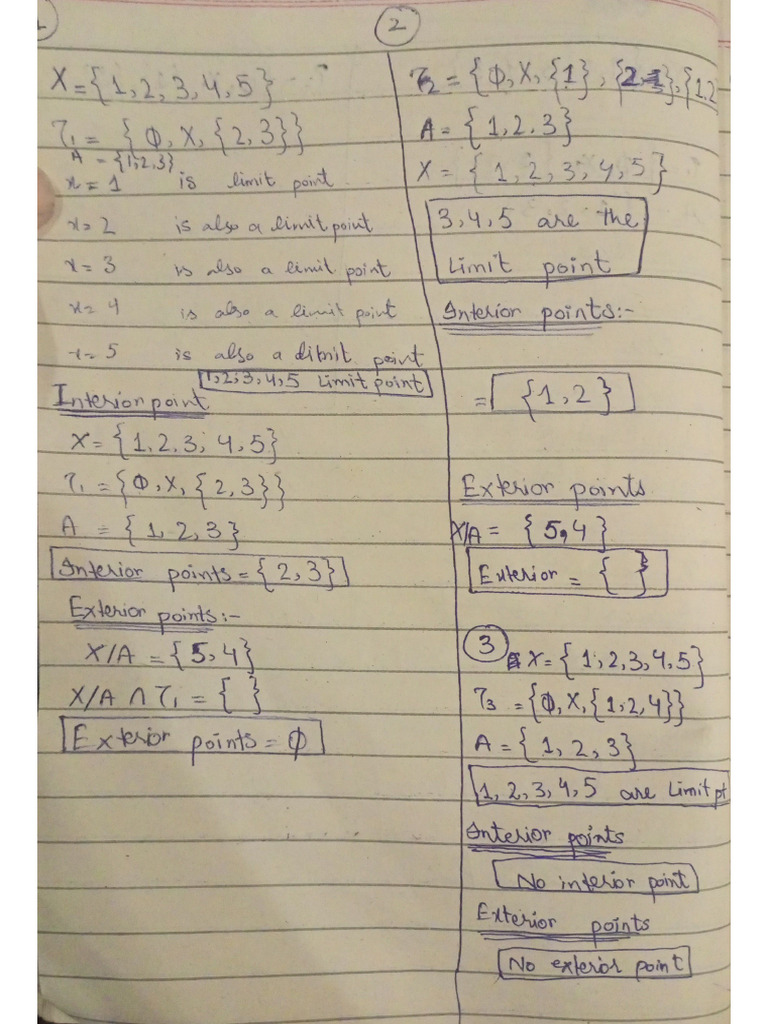 1
X = {1, 2, 3, 4, 5}
τ₁ = { Φ, X, {2, 3}}
A = {1,2,3}
x = 1 is limit point
x = 2 is also a limit point
x = 3 is also a limit point
x = 4 is also a limit point
x = 5 is also a limit point
1, 2, 3, 4, 5 Limit point
Interior point
X = {1, 2, 3, 4, 5}
τ₁ = {Φ, X, {2, 3}}
A = {1, 2, 3}
Interior points = {2, 3}
Exterior points :-
X/A = {5, 4}
X/A ∩ τ₁ = { }
Exterior points = Φ
2
τ₂ = {Φ, X, {1}, {2}, {1,2
A = {1, 2. 3}
X = {1, 2, 3, 4, 5}
3, 4, 5 are the
Limit point
Interior points :-
= {1, 2}
Exterior points
X/A = {5, 4}
Exterior = { }
3
X = {1, 2, 3, 4, 5}
τ₃ = {Φ, X, {1, 2, 4}}
A = {1, 2, 3}
1, 2, 3, 4, 5 are Limit pt
Interior points
No interior point
Exterior points
No exterior point